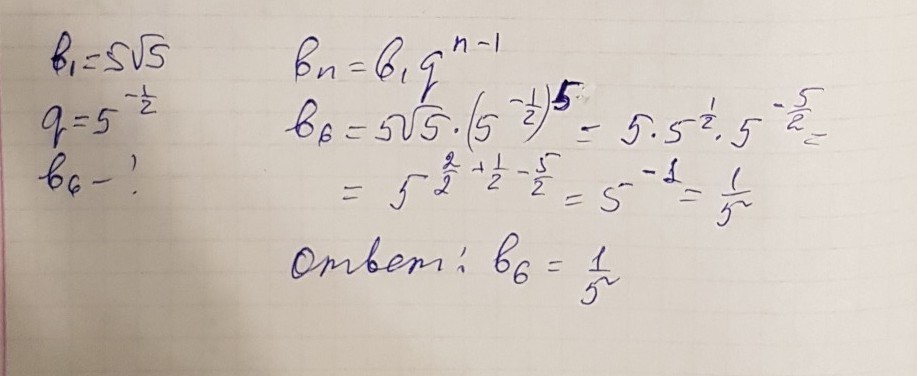 b₁=5√5
q=5^{-1/2}
b₆-?
bₙ=b₁q^{n-1}
b₆=5√5·(5^{-1/2})^5=5·5^{1/2}·5^{-5/2}=
=5^{2/2+1/2-5/2}=5^{-1}=1/5
Ответ: b₆=1/5